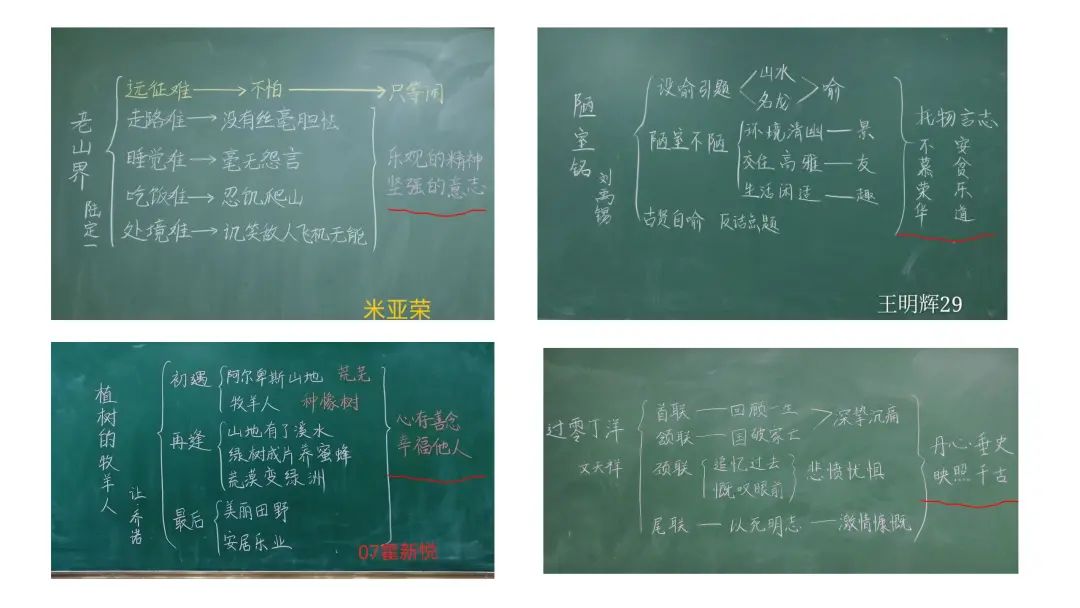 老山界
陆定一
远征难→不怕→只等闲
走路难→没有丝毫胆怯
睡觉难→毫无怨言
吃饭难→忍饥爬山
处境难→讥笑敌人飞机无能
乐观的精神
坚强的意志
米亚荣
陋室铭
刘禹锡
设喻引题
山水
名龙
喻
陋室不陋
环境清幽—景
交往高雅—友
生活闲适—趣
古贤自喻 反诘点题
托物言志
不慕荣华
安贫乐道
王明辉29
植树的牧羊人
让·乔诺
初遇
阿尔卑斯山地 荒芜
牧羊人 种橡树
再逢
山地有了溪水
绿树成片养蜜蜂
荒漠变绿洲
最后
美丽田野
安居乐业
心存善念
幸福他人
07霍新悦
过零丁洋
文天祥
首联—回顾一生
颔联—国破家亡
深挚沉痛
颈联
追忆过去
慨叹眼前
悲愤忧惧
尾联—以死明志—激情慷慨
丹心·垂史
映照千古